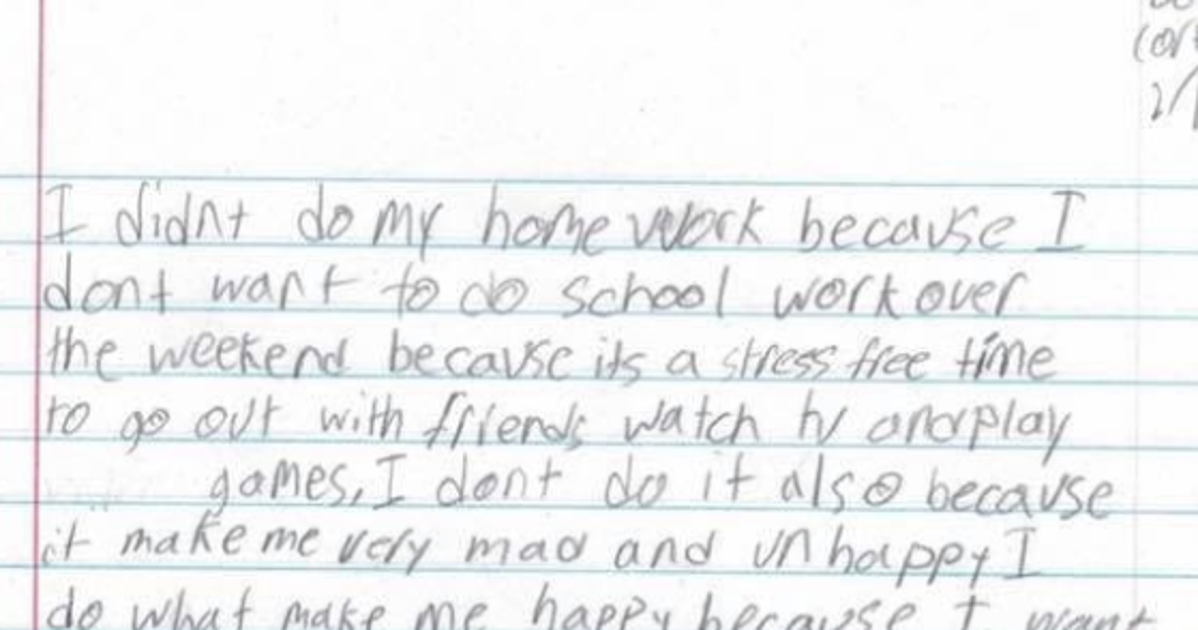 I didnt do my home work because I
dont want to do school work over
the weekend because its a stress free time
to go out with friends watch tv and play
games, I dont do it also because
it make me very mad and unhappy I
do what make me happy because I want